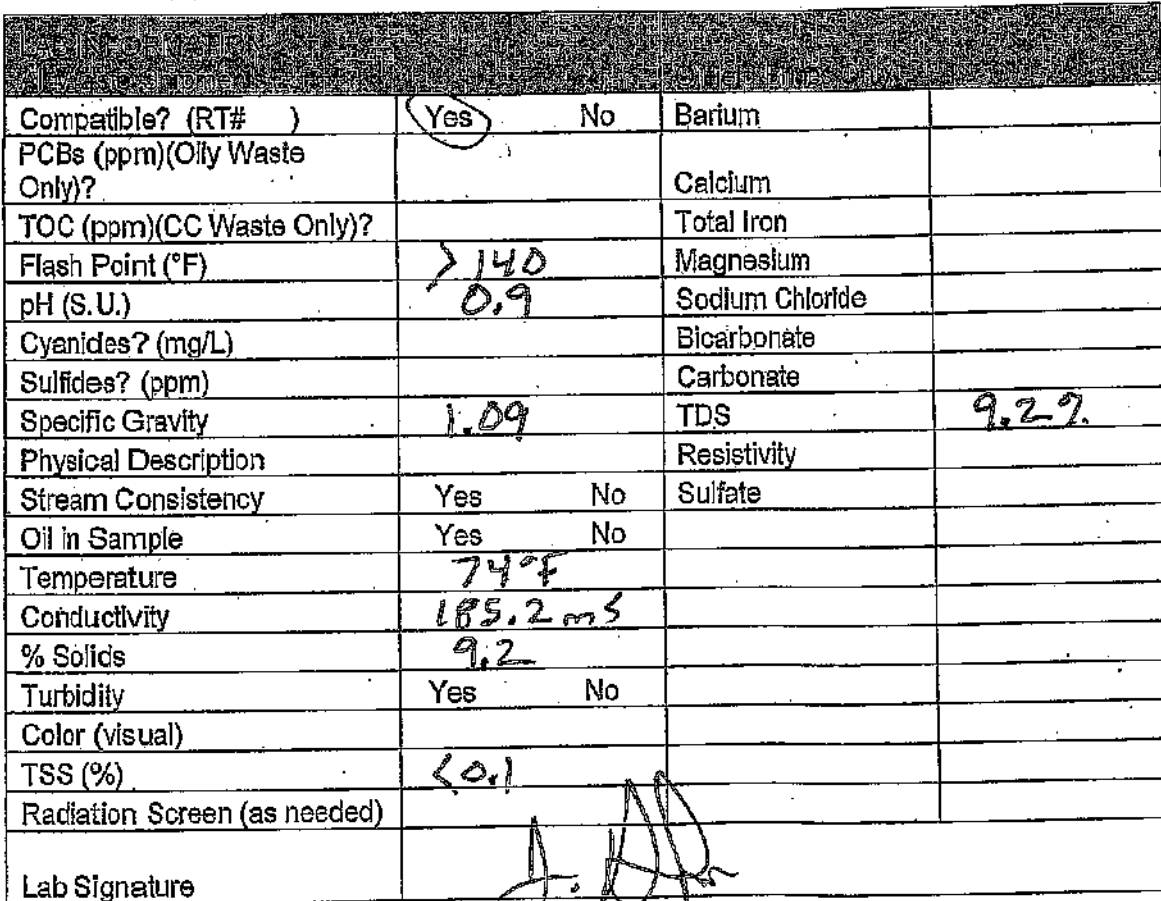 LAB INFORMATION
Compatible? (RT# ) Yes No Barium
PCBs (ppm)(Oily Waste
Only)? Calcium
TOC (ppm)(CC Waste Only)? Total Iron
Flash Point (°F) >140 Magnesium
pH (S.U.) 0.9 Sodium Chloride
Cyanides? (mg/L) Bicarbonate
Sulfides? (ppm) Carbonate
Specific Gravity 1.09 TDS 9.2%
Physical Description Resistivity
Stream Consistency Yes No Sulfate
Oil in Sample Yes No
Temperature 74°F
Conductivity 185.2 mS
% Solids 9.2
Turbidity Yes No
Color (visual)
TSS (%) <0.1
Radiation Screen (as needed)
Lab Signature